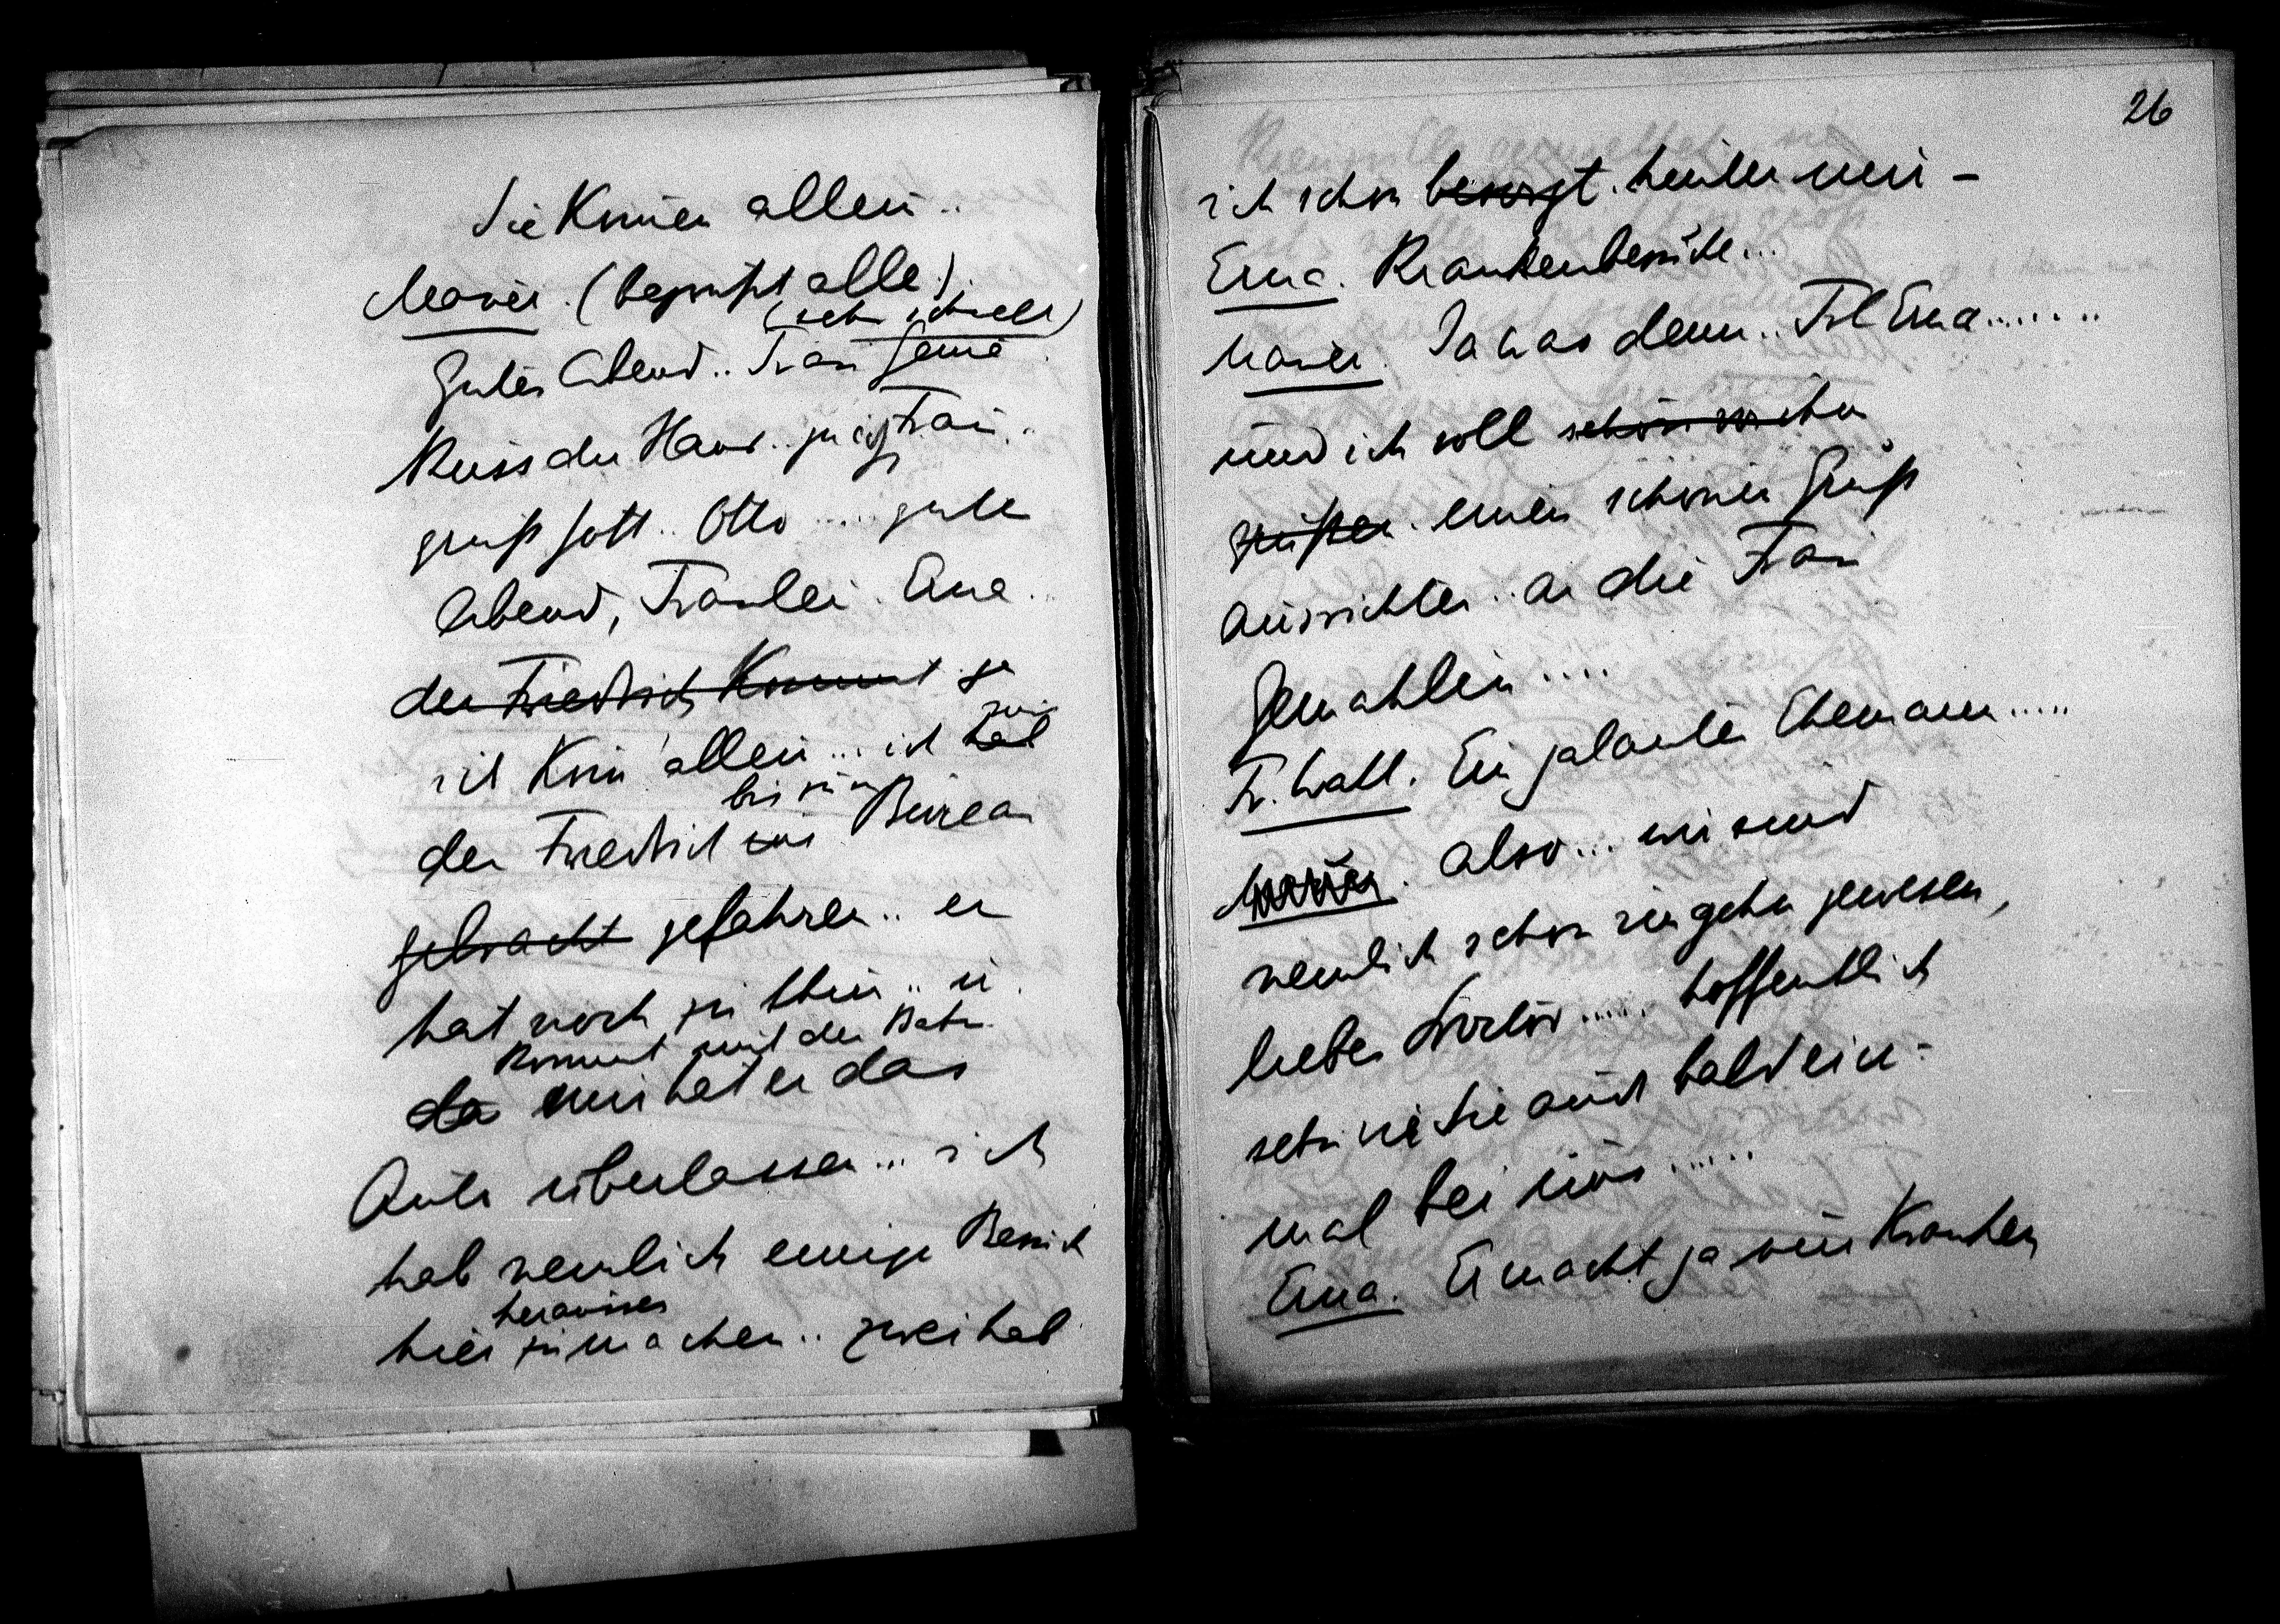 Sie kommen allein..
Mauer. (begrüßt alle)
(sehr schnell)
Guten Abend.. Frau Genia
Küss die Hand.. gnäg Frau..
grüß Gott.. Otto .... guten
Abend, Fräulein Erna..
der Friedrich kommt ja
ich komm allein... ich hab
bin nur
den Friedrich ins Bureau
gebracht gefahren.. er
hat noch zu thun.. u.
kommt mit der Bahn
da mir hat er das
Auto überlassen... ich
hab nemlich einige Besuch
heraussen
hier zu machen.. zwei hab
26
ich schon besorgt. hinter mir –
Erna. Krankenbesuche...
Mauer. Ja was denn.. Frl Erna.......
und ich soll schön von ihm
grüßen. einen schönen Gruß
ausrichten.. an die Frau
Gemahlin....
Fr. Wahl. Ein galanter Ehemann.....
Mauer. also... wir sind
nemlich schon sie gehn gewesen,
lieber Doctor..... hoffentlich
sehn wir Sie auch bald ein-
mal bei uns......
Erna. Er macht ja nur Kranken